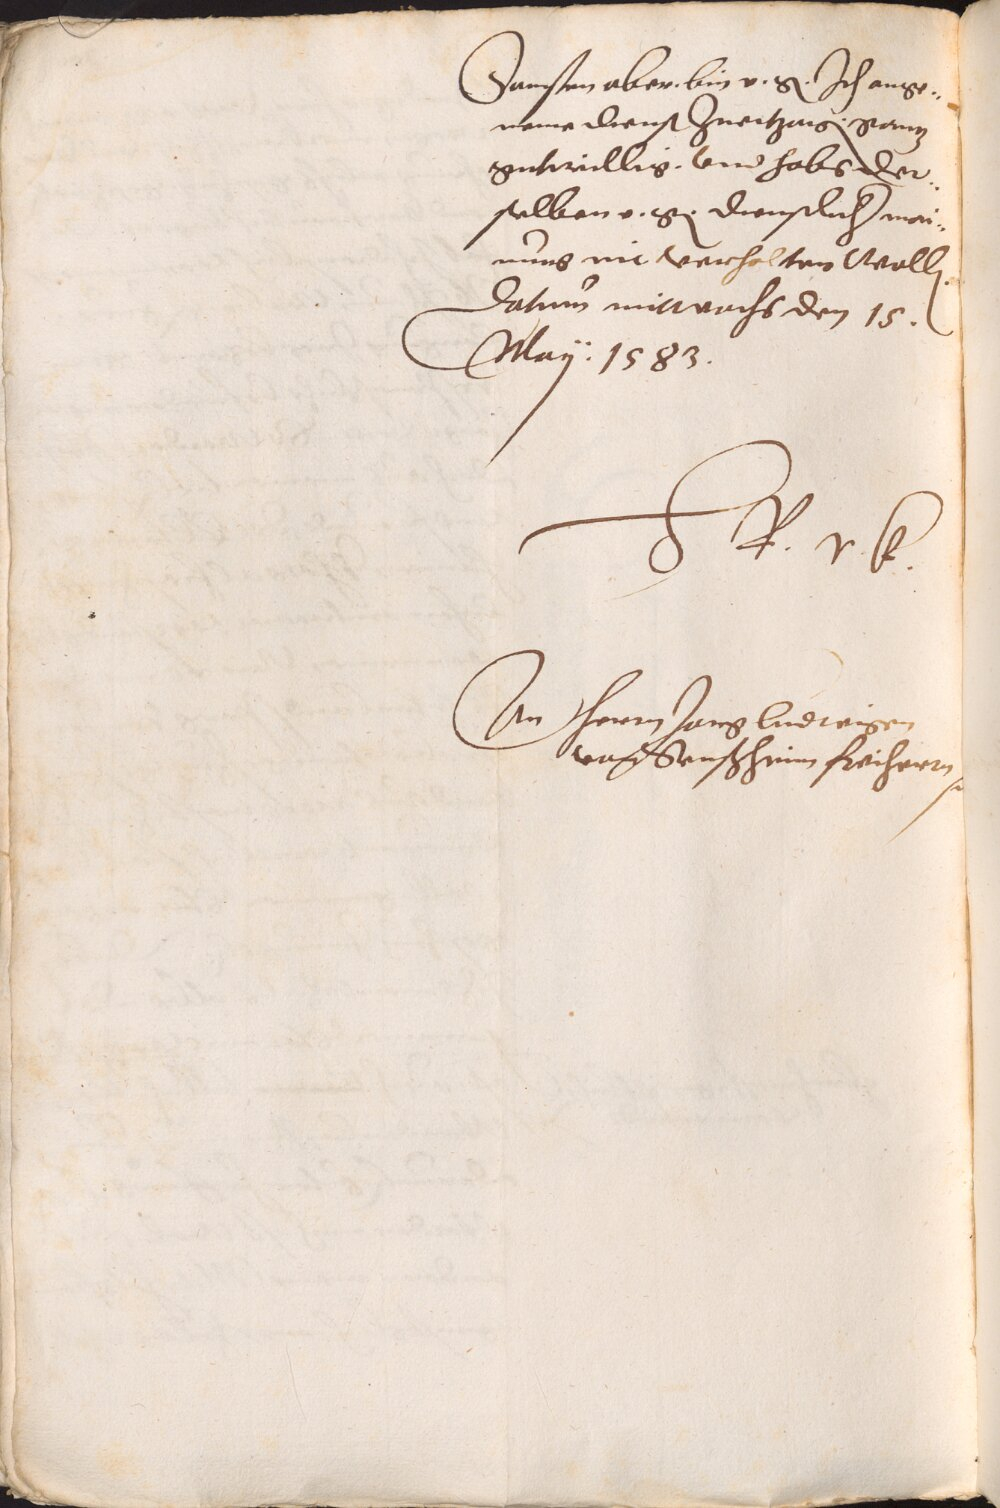 Sonsten aber bin e. g. Ich ange„
neme dienst Zuertzaig: gantz
gutwillig. Vnd habs der„
selben e. g. dienstlich mai„
nung nit verhalten Woll.
Datum mittwochs den 15.
May. 1583.
V. K.
An Herrn Jorg Ludwigen
von Seinßheim freiherrn